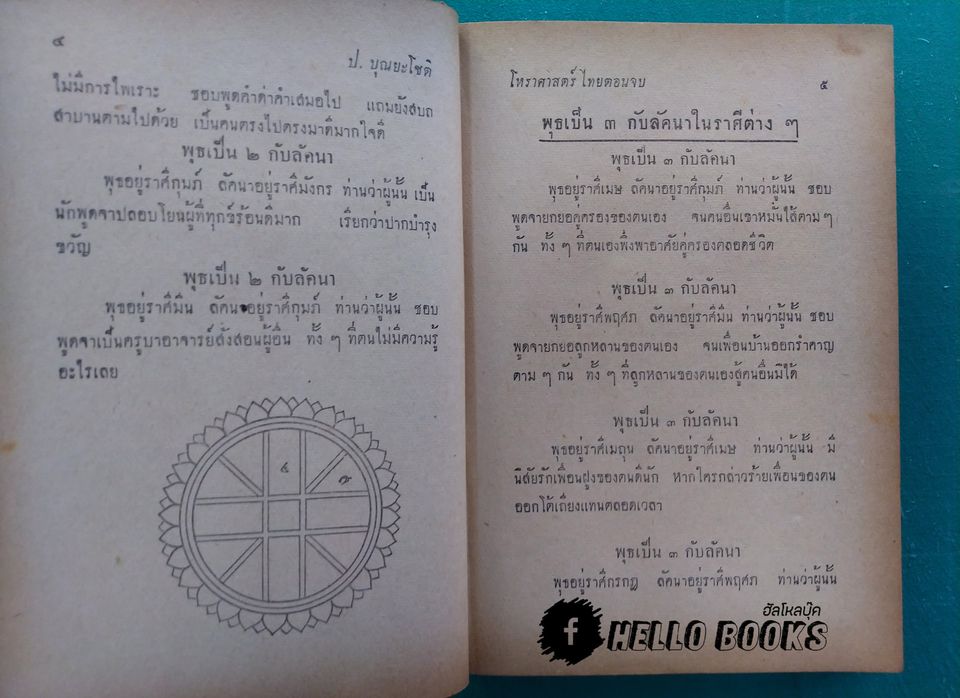 ๔
ป. บุณยะโชติ
ไม่มีการไพเราะ ชอบพูดคำด่าคำเสมอไป แถมยังสบถ
สาบานตามไปด้วย เป็นคนตรงไปตรงมาดีมากใจดี
พุธเป็น ๒ กับลัคนา
พุธอยู่ราศีกุมภ์ ลัคนาอยู่ราศีมังกร ท่านว่าผู้นั้น เป็น
นักพูดจาปลอบโยนผู้ที่ทุกข์ร้อนดีมาก เรียกว่าปากบำรุง
ขวัญ
พุธเป็น ๒ กับลัคนา
พุธอยู่ราศีมีน ลัคนาอยู่ราศีกุมภ์ ท่านว่าผู้นั้น ชอบ
พูดจาเป็นครูบาอาจารย์สั่งสอนผู้อื่น ทั้ง ๆ ที่ตนไม่มีความรู้
อะไรเลย
โหราศาสตร์ไทยตอนจบ ๕
พุธเป็น ๓ กับลัคนาในราศีต่าง ๆ
พุธเป็น ๓ กับลัคนา
พุธอยู่ราศีเมษ ลัคนาอยู่ราศีกุมภ์ ท่านว่าผู้นั้น ชอบ
พูดจายกยอคู่ครองของตนเอง จนคนอื่นเขาหมั่นไส้ตาม ๆ
กัน ทั้ง ๆ ที่ตนเองพึ่งพาอาศัยคู่ครองตลอดชีวิต
พุธเป็น ๓ กับลัคนา
พุธอยู่ราศีพฤศภ ลัคนาอยู่ราศีมีน ท่านว่าผู้นั้น ชอบ
พูดจายกยอลูกหลานของตนเอง จนเพื่อนบ้านออกรำคาญ
ตาม ๆ กัน ทั้ง ๆ ที่ลูกหลานของตนเองสู้คนอื่นมิได้
พุธเป็น ๓ กับลัคนา
พุธอยู่ราศีเมถุน ลัคนาอยู่ราศีเมษ ท่านว่าผู้นั้น มี
นิสัยรักเพื่อนฝูงของตนดีนัก หากใครกล่าวร้ายเพื่อนของตน
ออกโต้เถียงแทนตลอดเวลา
พุธเป็น ๓ กับลัคนา
พุธอยู่ราศีกรกฎ ลัคนาอยู่ราศีพฤศภ ท่านว่าผู้นั้น
ฮัลโหลบุ๊ค
f HELLO BOOKS